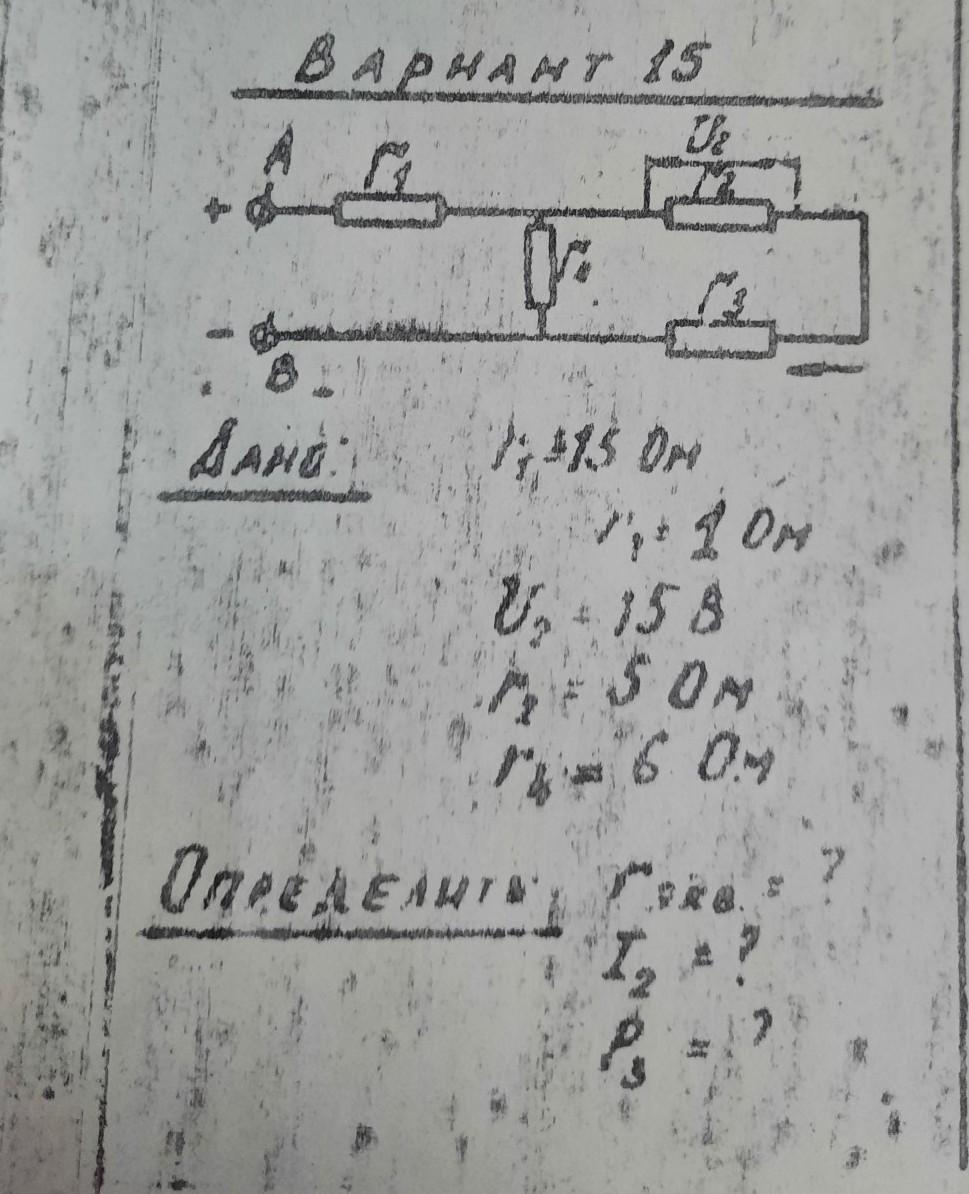 ВАРИАНТ 15
U₂
A r₁ r₂
+
r₄
r₃
-
B
ДАНО: r₁=15 Ом
= 1 Ом
= 15 В
r₂ = 5 Ом
r₄ = 6 Ом
ОПРЕДЕЛИТЬ: rэкв. = ?
I₂ = ?
P₃ = ?